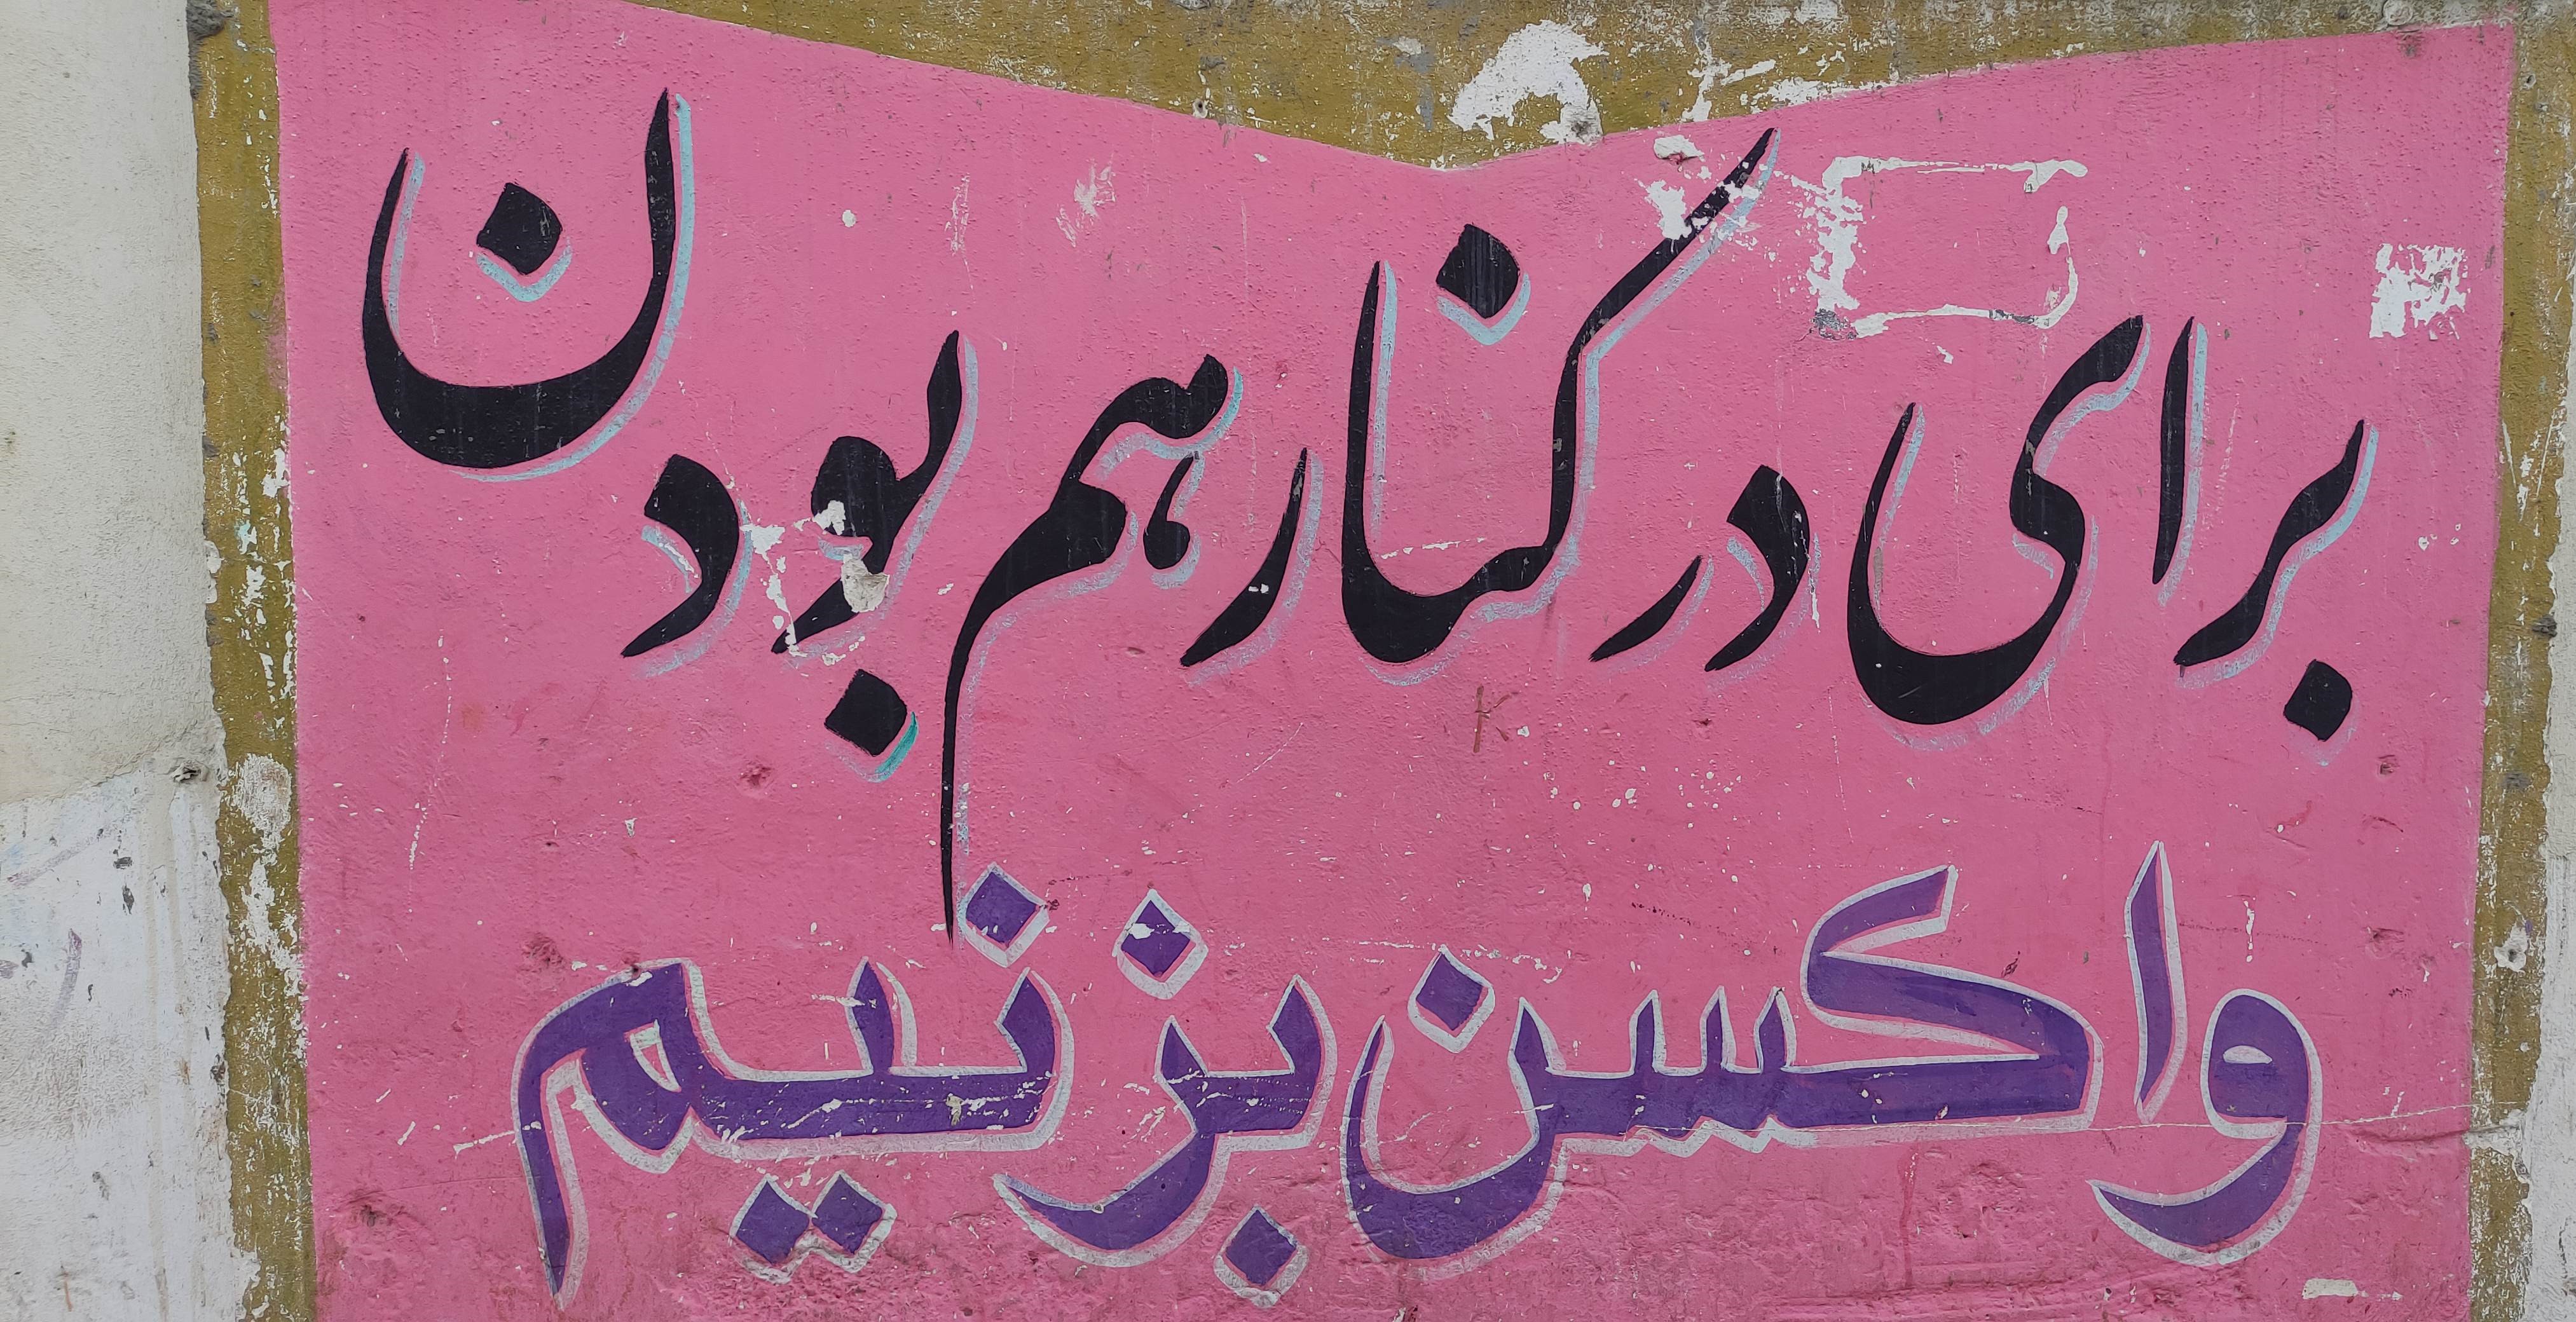 برای در کنار هم بودن
واکسن بزنیم
K